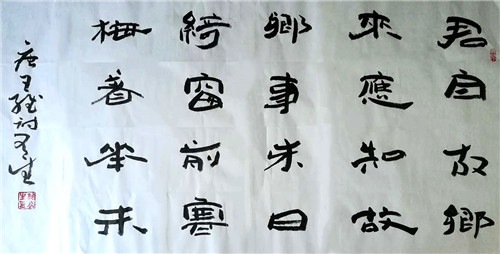 君自故鄉
來應知故
鄉事来日
綺窗前寒
梅著花未
唐王維詩